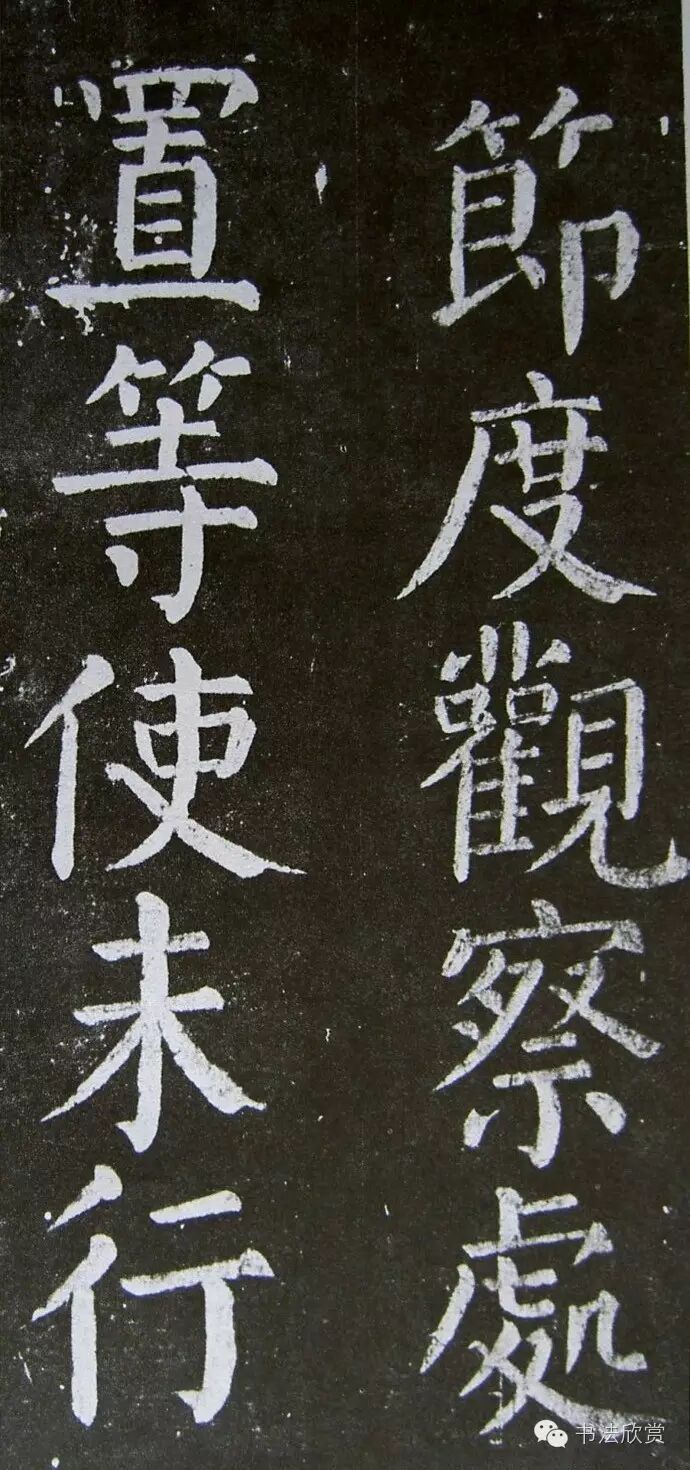 節度觀察處
置等使未行
书法欣赏